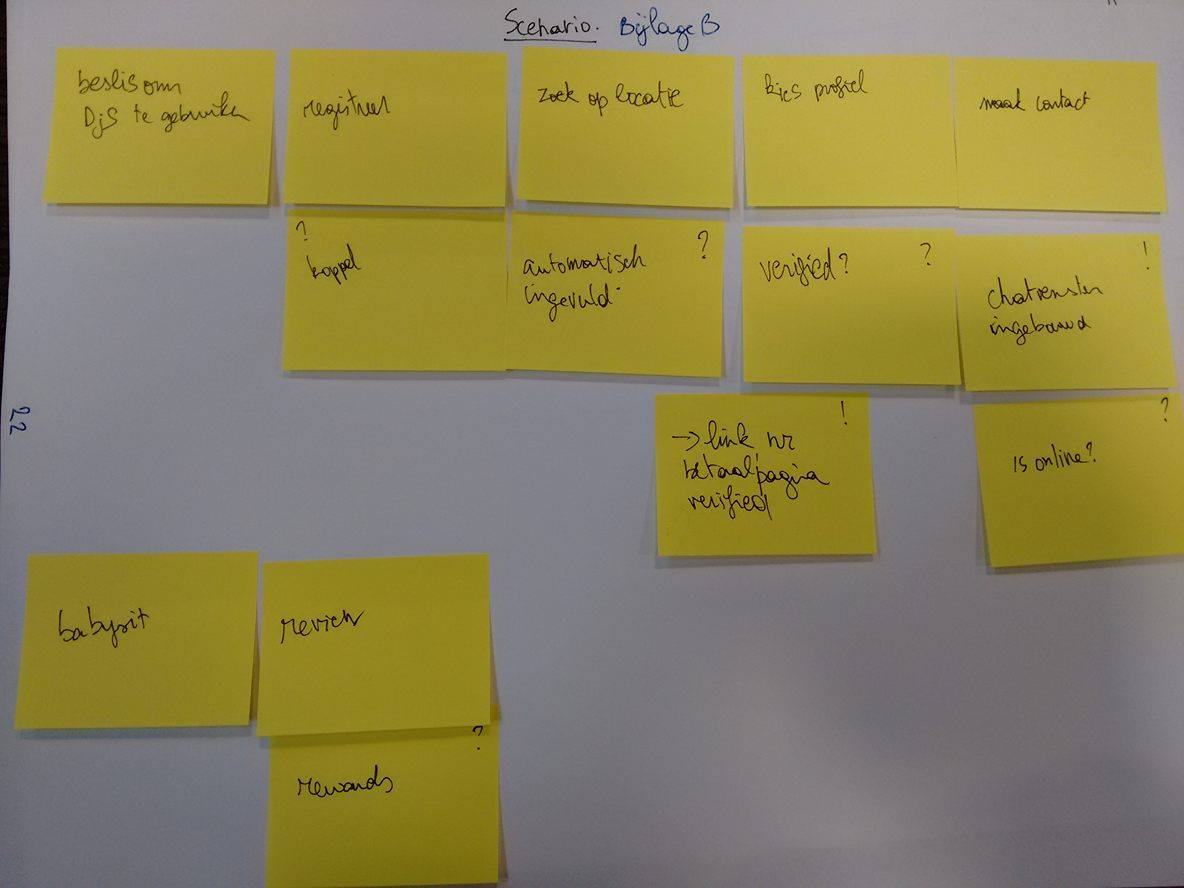 Scenario. Bijlage B
beslis om
DjS te gebruiken
registreer
zoek op locatie
kies profiel
maak contact
?
koppel
automatisch ?
ingevuld
verified? ?
!
chatvenster
ingebouwd
!
-> link nr
betaalpagina
verified
?
is online?
22
babysit
review
?
rewards